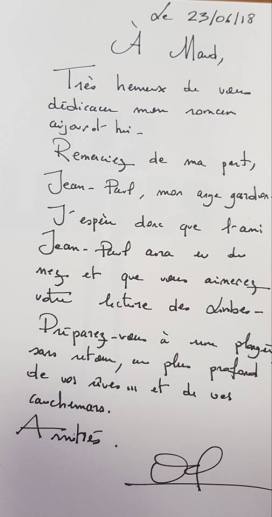 Le 23/06/18
À Maud,
Très heureux de vous
dédicacer mon roman
aujourd'hui -
Remerciez de ma part,
Jean-Paul, mon ange gardien.
J'espère donc que l'ami
Jean-Paul aura eu du
nez et que vous aimerez
votre lecture des Limbes -
Préparez-vous à une plongée
sans retour, au plus profond
de vos rêves... et de vos
cauchemars.
Amitiés.